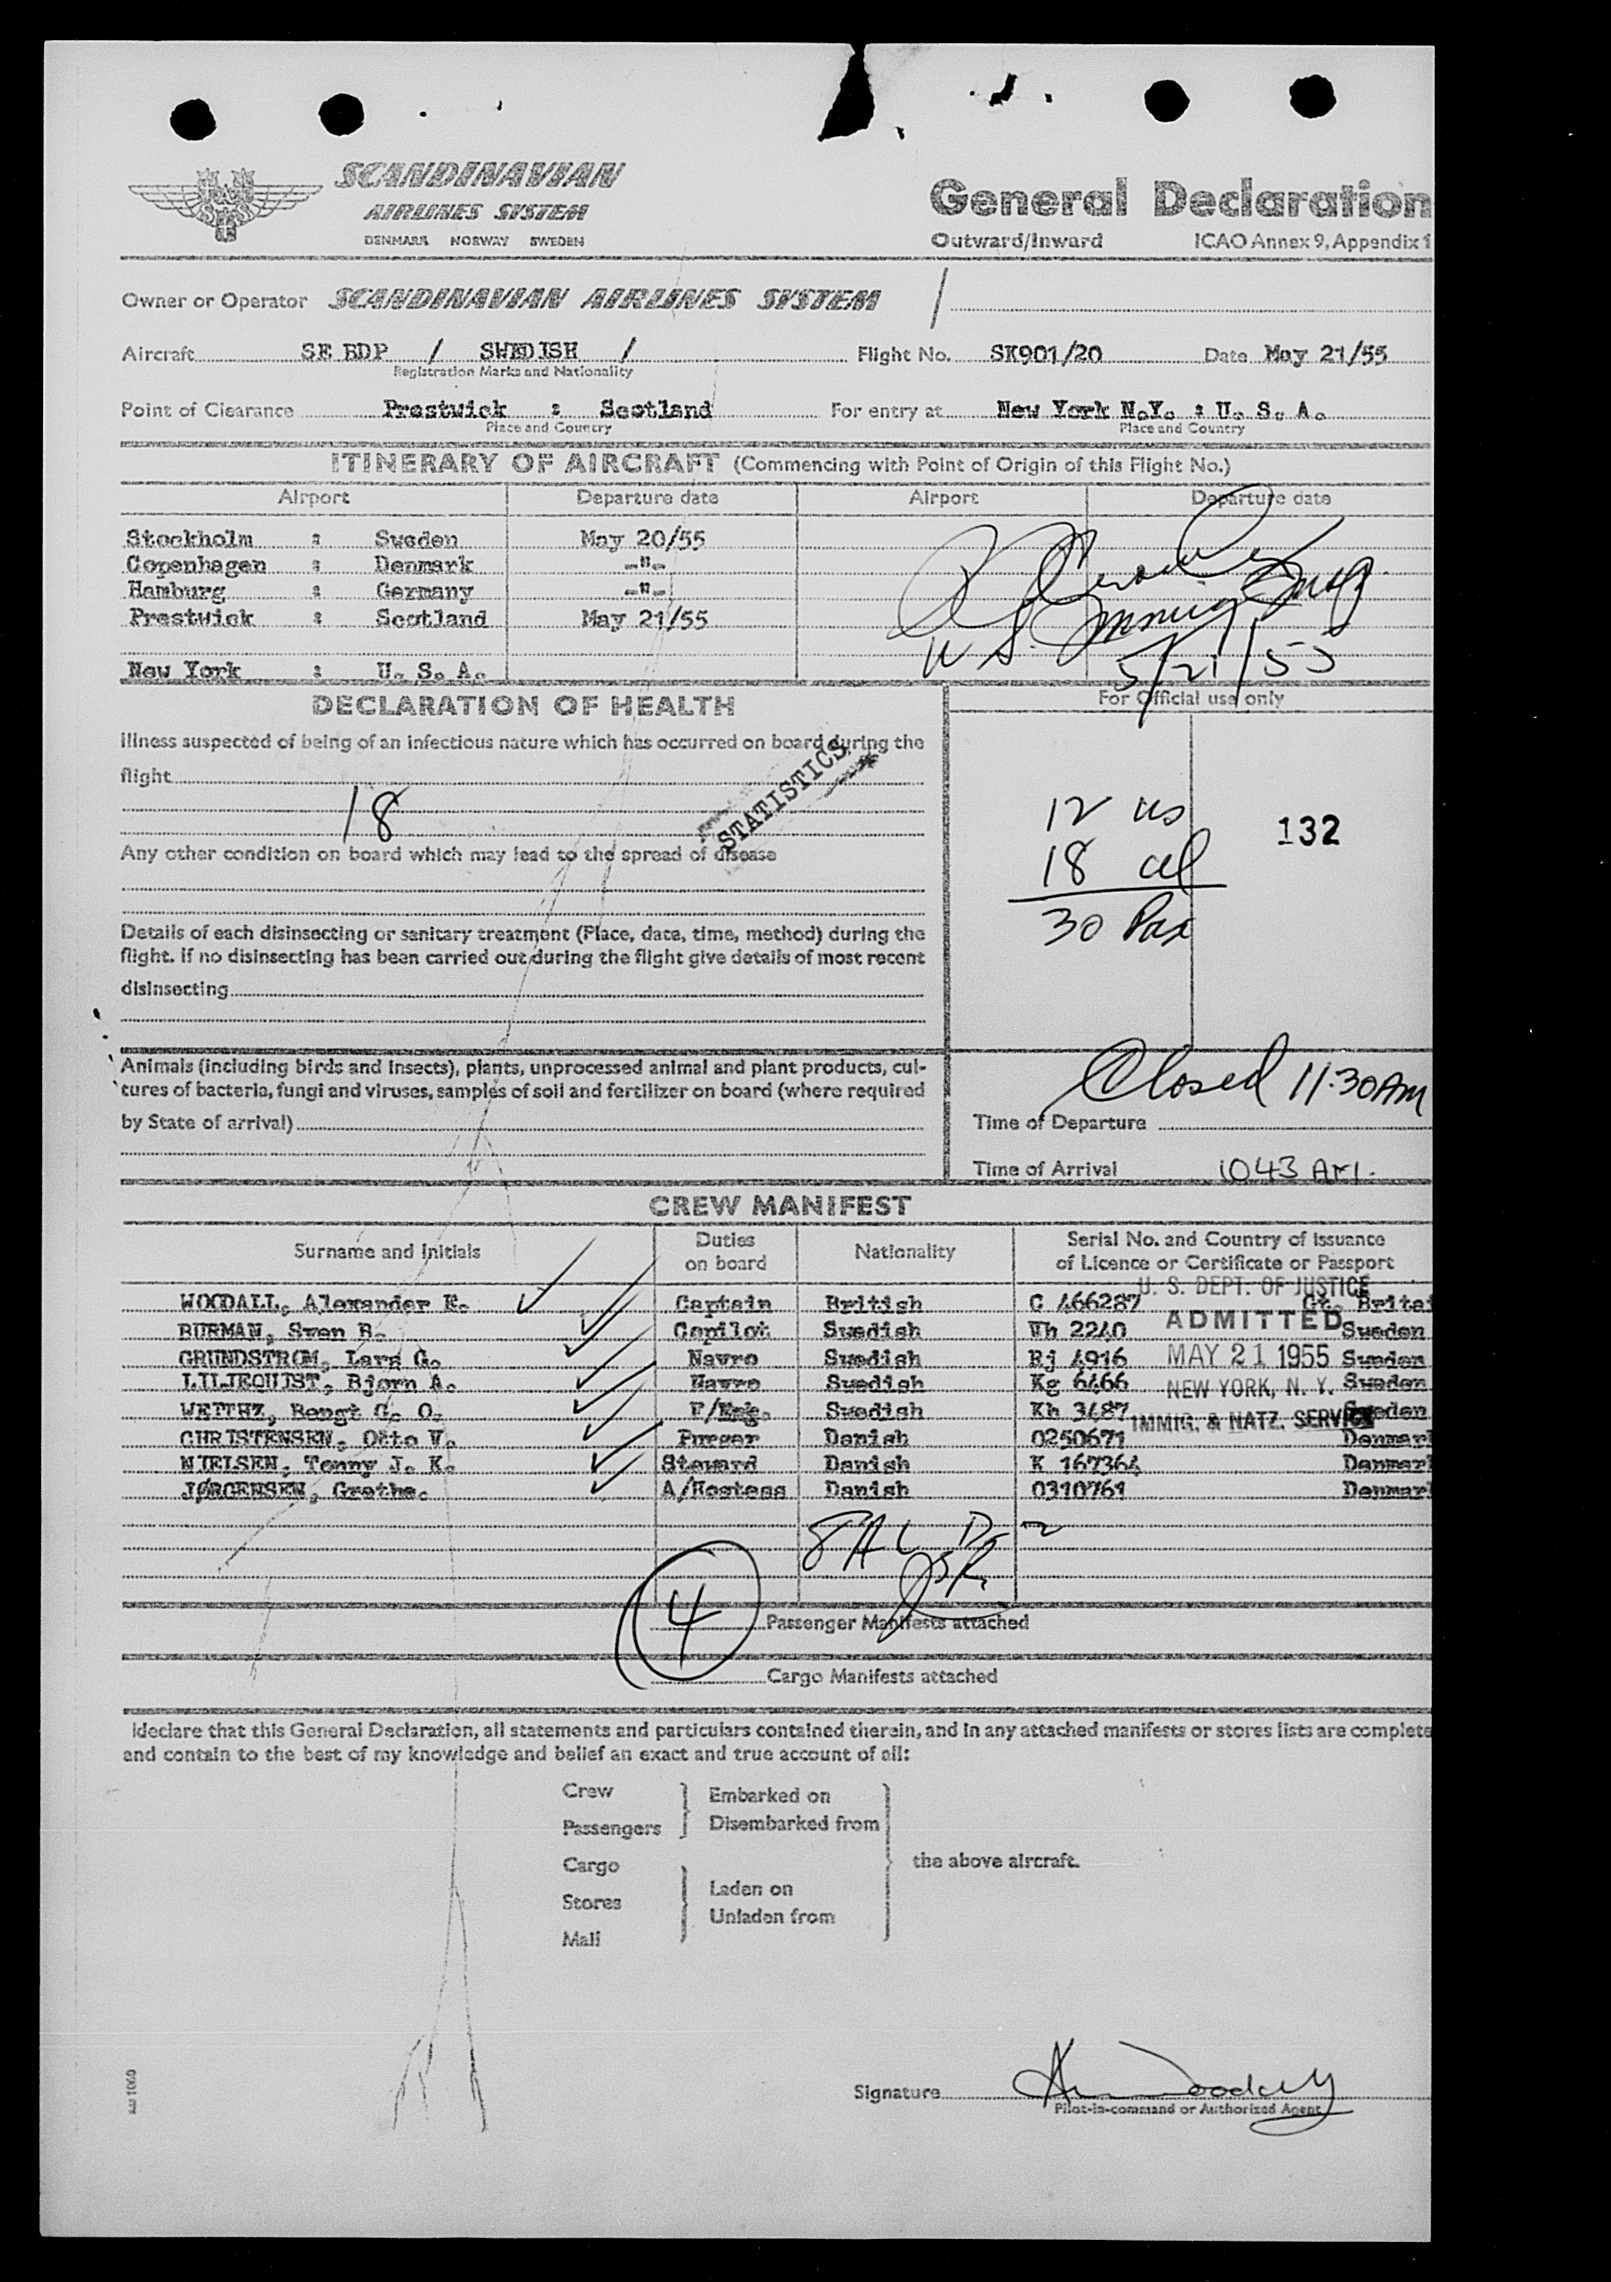 SCANDINAVIAN
AIRLINES SYSTEM
DENMARK NORWAY SWEDEN
General Declaration
Outward/Inward ICAO Annex 9, Appendix 1
Owner or Operator SCANDINAVIAN AIRLINES SYSTEM
Aircraft SE BDP / SWEDISH / Flight No. SK901/20 Date May 21/55
Registration Marks and Nationality
Point of Clearance Prestwick : Scotland For entry at New York N.Y. : U. S. A.
Place and Country Place and Country
ITINERARY OF AIRCRAFT (Commencing with Point of Origin of this Flight No.)
Airport Departure date Airport Departure date
Stockholm : Sweden May 20/55
Copenhagen : Denmark -"-
Hamburg : Germany -"-
Prestwick : Scotland May 21/55
U S. Immig
5/21/55
New York : U. S. A.
DECLARATION OF HEALTH
For Official use only
Illness suspected of being of an infectious nature which has occurred on board during the
flight
18
STATISTICS
12 us
18 al
30 Pax
132
Any other condition on board which may lead to the spread of disease
Details of each disinsecting or sanitary treatment (Place, date, time, method) during the
flight. If no disinsecting has been carried out during the flight give details of most recent
disinsecting
Animals (including birds and insects), plants, unprocessed animal and plant products, cul-
tures of bacteria, fungi and viruses, samples of soil and fertilizer on board (where required
by State of arrival)
Closed 11:30 AM
Time of Departure
Time of Arrival 1043 AM.
CREW MANIFEST
Surname and Initials Duties on board Nationality Serial No. and Country of Issuance of Licence or Certificate or Passport
U. S. DEPT. OF JUSTICE
ADMITTED
MAY 21 1955
NEW YORK, N. Y.
IMMIG. & NATZ. SERVICE
WOODALL, Alexander R. Captain British C 466287 Gt. Britai
BURMAN, Sven B. Copilot Swedish Wh 2240 Sweden
GRUNDSTROM, Lars G. Navro Swedish Rj 4916 Sweden
LILJEQUIST, Bjorn A. Navro Swedish Kg 6466 Sweden
Bengt G. O. F/Eng. Swedish Kh 3487 Sweden
CHRISTENSEN, Otto V. Purser Danish 0250671 Denmark
NIELSEN, Tonny J. K. Steward Danish K 167364 Denmark
JØRGENSEN, Grethe. A/Hostess Danish 0310761 Denmark
4 Passenger Manifests attached
Cargo Manifests attached
I declare that this General Declaration, all statements and particulars contained therein, and in any attached manifests or stores lists are complete
and contain to the best of my knowledge and belief an exact and true account of all:
Crew
Passengers
Embarked on
Disembarked from
Cargo
Stores
Mail
Laden on
Unladen from
the above aircraft.
Signature
Pilot-in-command or Authorized Agent